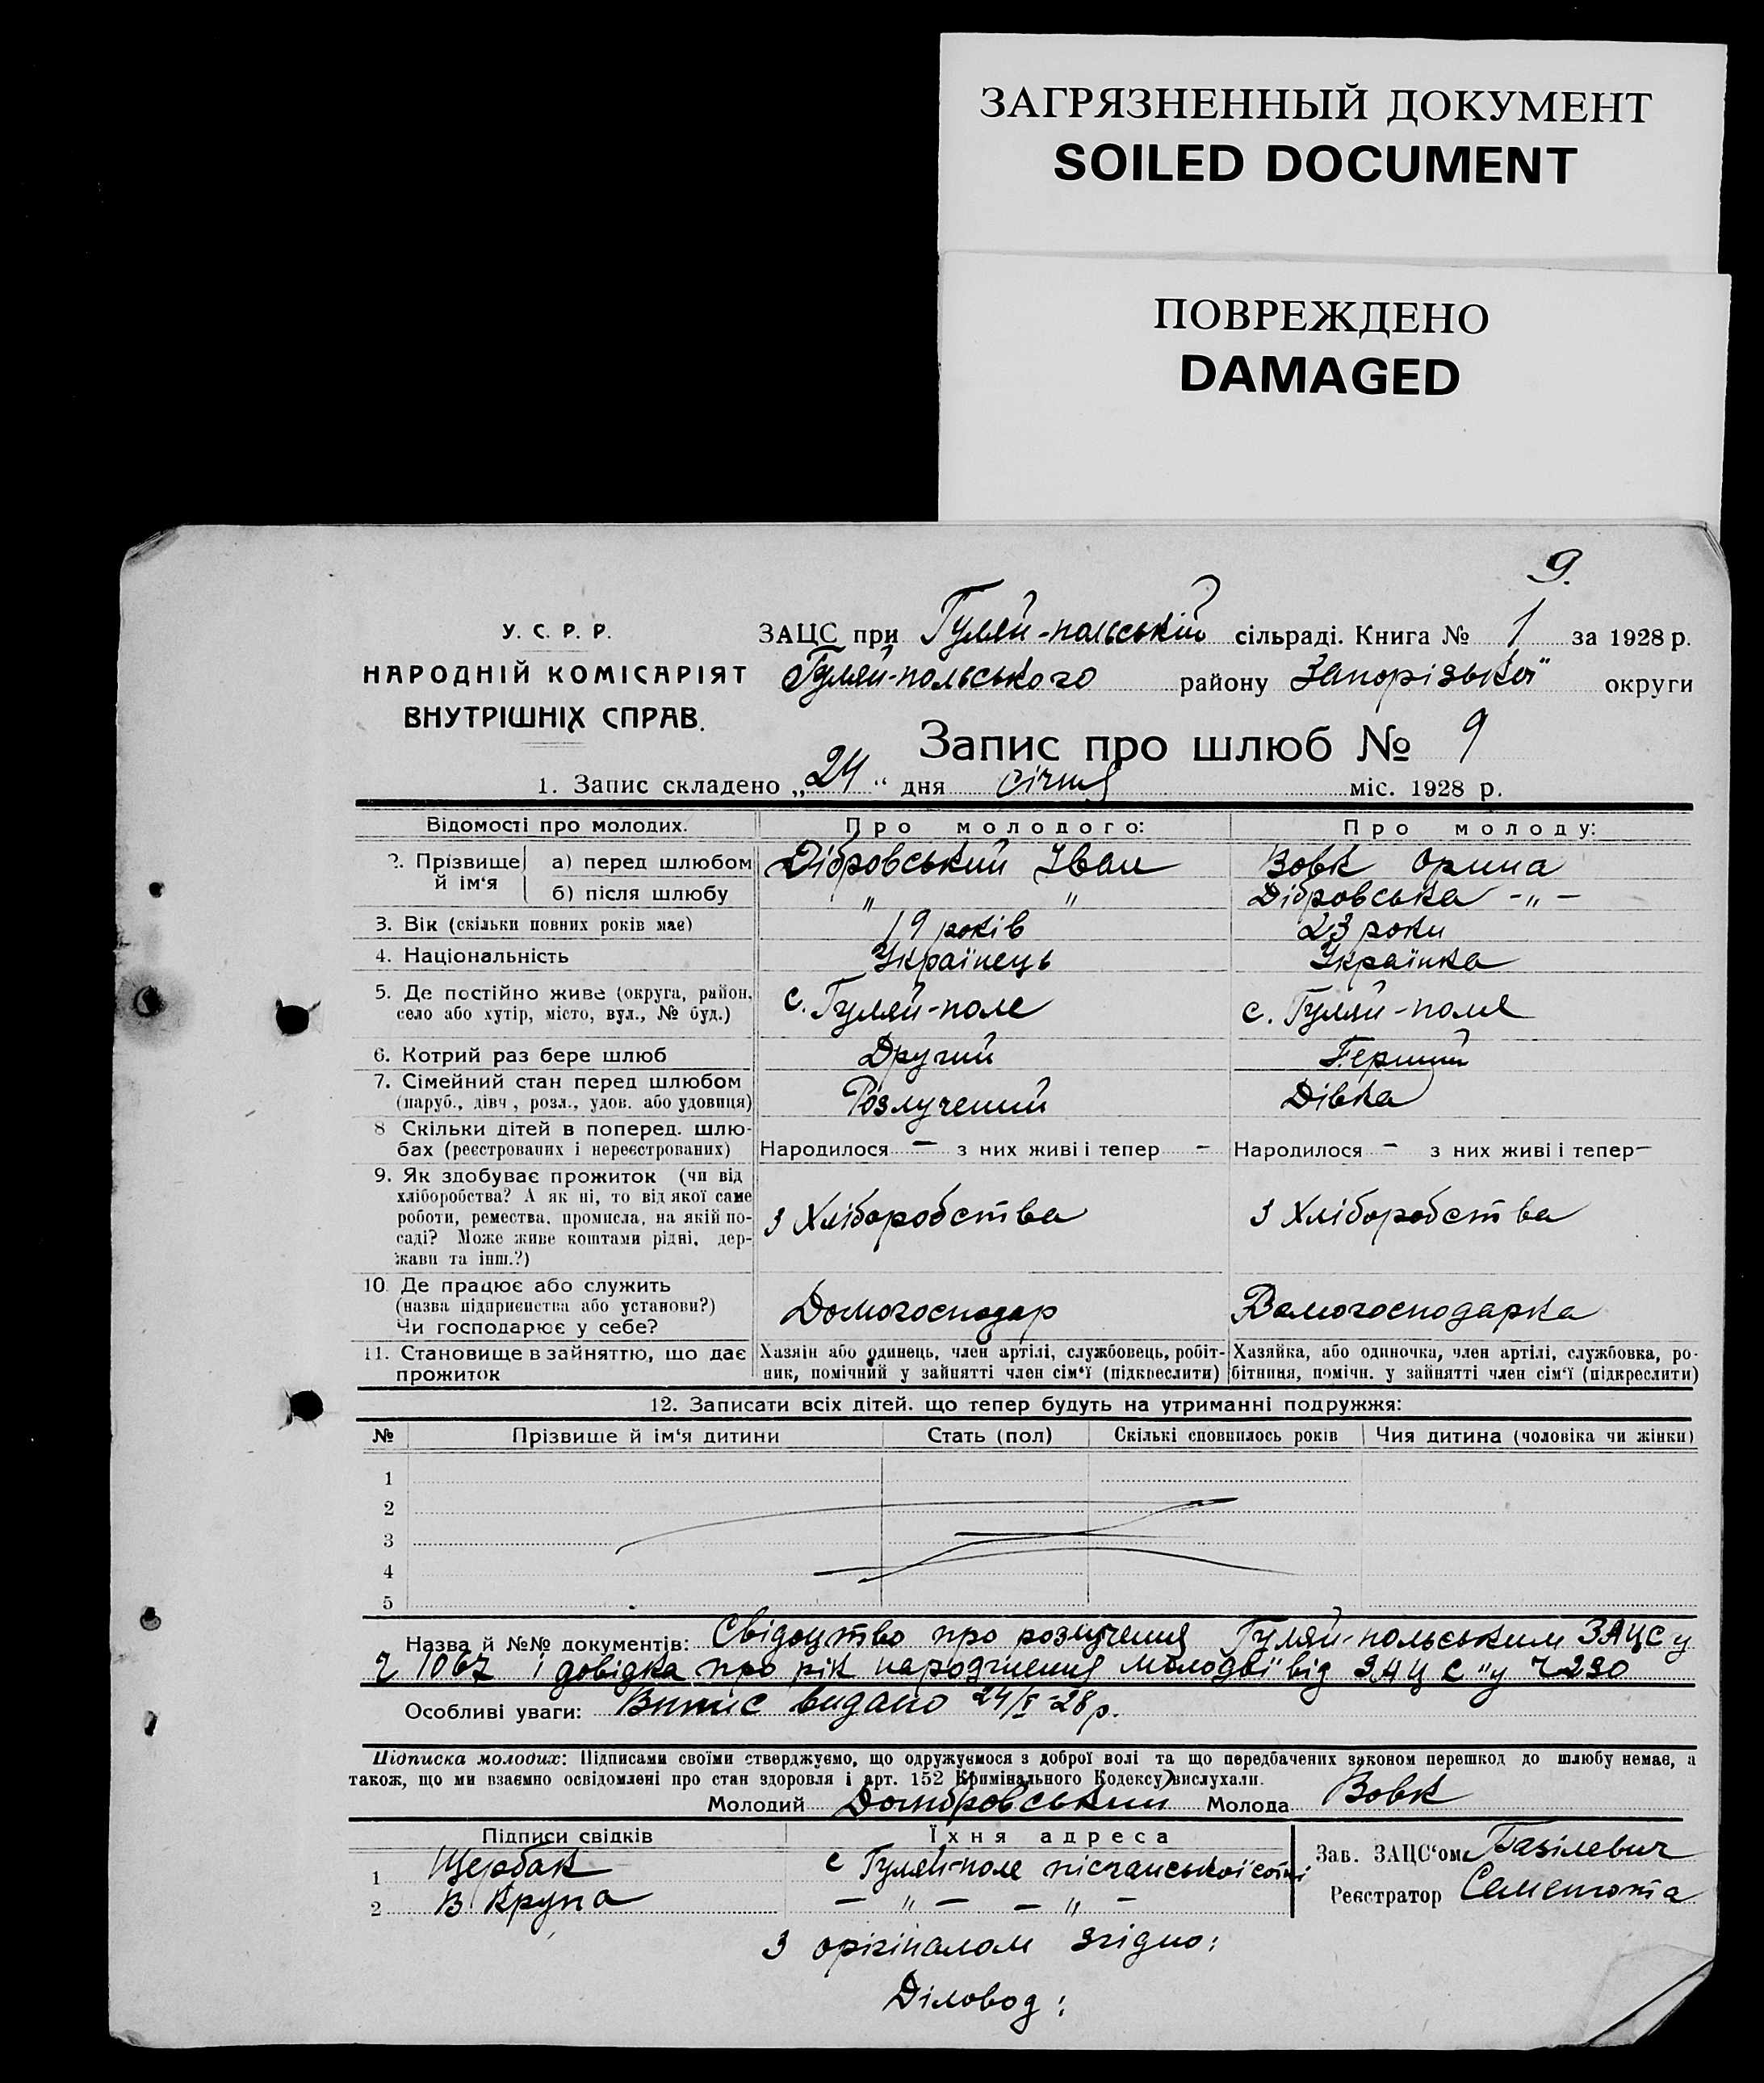 ЗАГРЯЗНЕННЫЙ ДОКУМЕНТ
SOILED DOCUMENT
ПОВРЕЖДЕНО
DAMAGED
9.
У. С. Р. Р.
НАРОДНІЙ КОМІСАРІЯТ
ВНУТРІШНІХ СПРАВ.
ЗАЦС при Гуляй-польській сільраді. Книга № 1 за 1928 р.
Гуляй-польського району Запорізької округи
Запис про шлюб № 9
1. Запис складено „24“ дня січня міс. 1928 р.
Відомості про молодих. Про молодого: Про молоду:
2. Прізвище й ім‘я а) перед шлюбом Дібровський Іван Вовк Орина
б) після шлюбу " " Дібровська -„-
3. Вік (скільки повних років має) 19 років 23 роки
4. Національність Українець Українка
5. Де постійно живе (округа, район, с. Гуляй-поле с. Гуляй-поле
село або хутір, місто, вул., № буд.)
6. Котрий раз бере шлюб Другий Перший
7. Сімейний стан перед шлюбом Розлучений Дівка
(паруб., дівч., розл., удов. або удовиця)
8 Скільки дітей в поперед. шлю-
бах (реєстрованих і нереєстрованих) Народилося — з них живі і тепер — Народилося — з них живі і тепер —
9. Як здобуває прожиток (чи від
хліборобства? А як ні, то від якої саме
роботи, ремества, промисла, на якій по- З Хліборобства З Хліборобства
саді? Може живе коштами рідні, дер-
жави та інш.?)
10. Де працює або служить
(назва підприємства або установи?) Домогосподар Домогосподарка
Чи господарює у себе?
11. Становище в зайняттю, що дає Хазяїн або одинець, член артілі, службовець, робіт- Хазяйка, або одиночка, член артілі, службовка, ро-
прожиток ник, помічний у зайнятті член сім‘ї (підкреслити) бітниця, помічн. у зайнятті член сім‘ї (підкреслити)
12. Записати всіх дітей. що тепер будуть на утриманні подружжя:
№ Прізвище й ім‘я дитини Стать (пол) Скількі сповнилось років Чия дитина (чоловіка чи жінки)
1
2
3
4
5
Назва й №№ документів: Свідоцтво про розлучення Гуляй-польським ЗАЦС у
Ч 1067 і довідка про рік народження молодої від ЗАЦС"у Ч 290
Особливі уваги: Витис видано 24/I-28 р.
Підписка молодих: Підписами своїми стверджуємо, що одружуємося з доброї волі та що передбачених законом перешкод до шлюбу немає, а
також, що ми взаємно освідомлені про стан здоровля і арт. 152 Кримінального Кодексу вислухали.
Молодий Домбровський Молода Вовк
Підписи свідків Їхня адреса
1 Щербак с Гуляй-поле пісчанської сотні
2 В Крупа — „ — — „ —
Зав. ЗАЦС‘ом Базілевич
Реєстратор Семенюта
З орігіналом згідно:
Діловод: